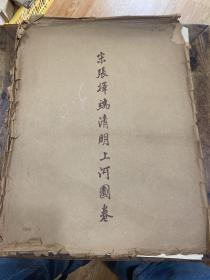 宋張擇端清明上河圖卷